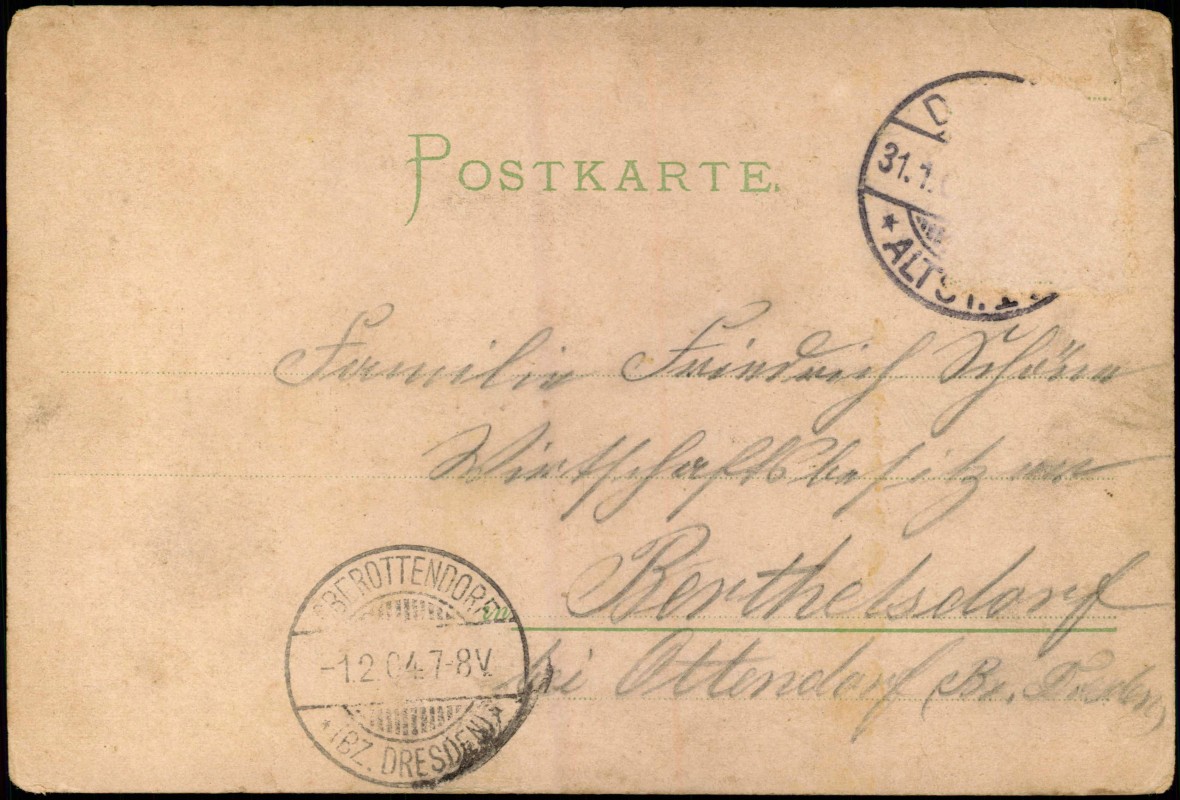 POSTKARTE.
31.1.
* ALTST. 1
Familie Friedrich Schöne
Wirtschaftsbesitzer
in Berthelsdorf
bei Ottendorf (Bz. Dresden)
OBEROTTENDORF
-1.2.04.7-8V.
* (BZ. DRESDEN) *